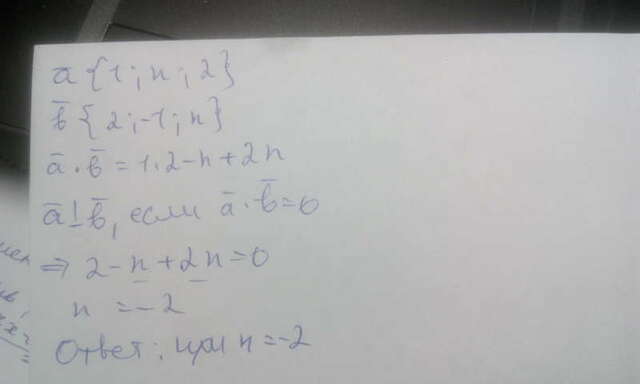 ā {1; n; 2}
b̄ {2; -1; n}
ā · b̄ = 1·2 - n + 2n
ā ⊥ b̄, если ā · b̄ = 0
⇒ 2 - n + 2n = 0
n = -2
Ответ: при n = -2